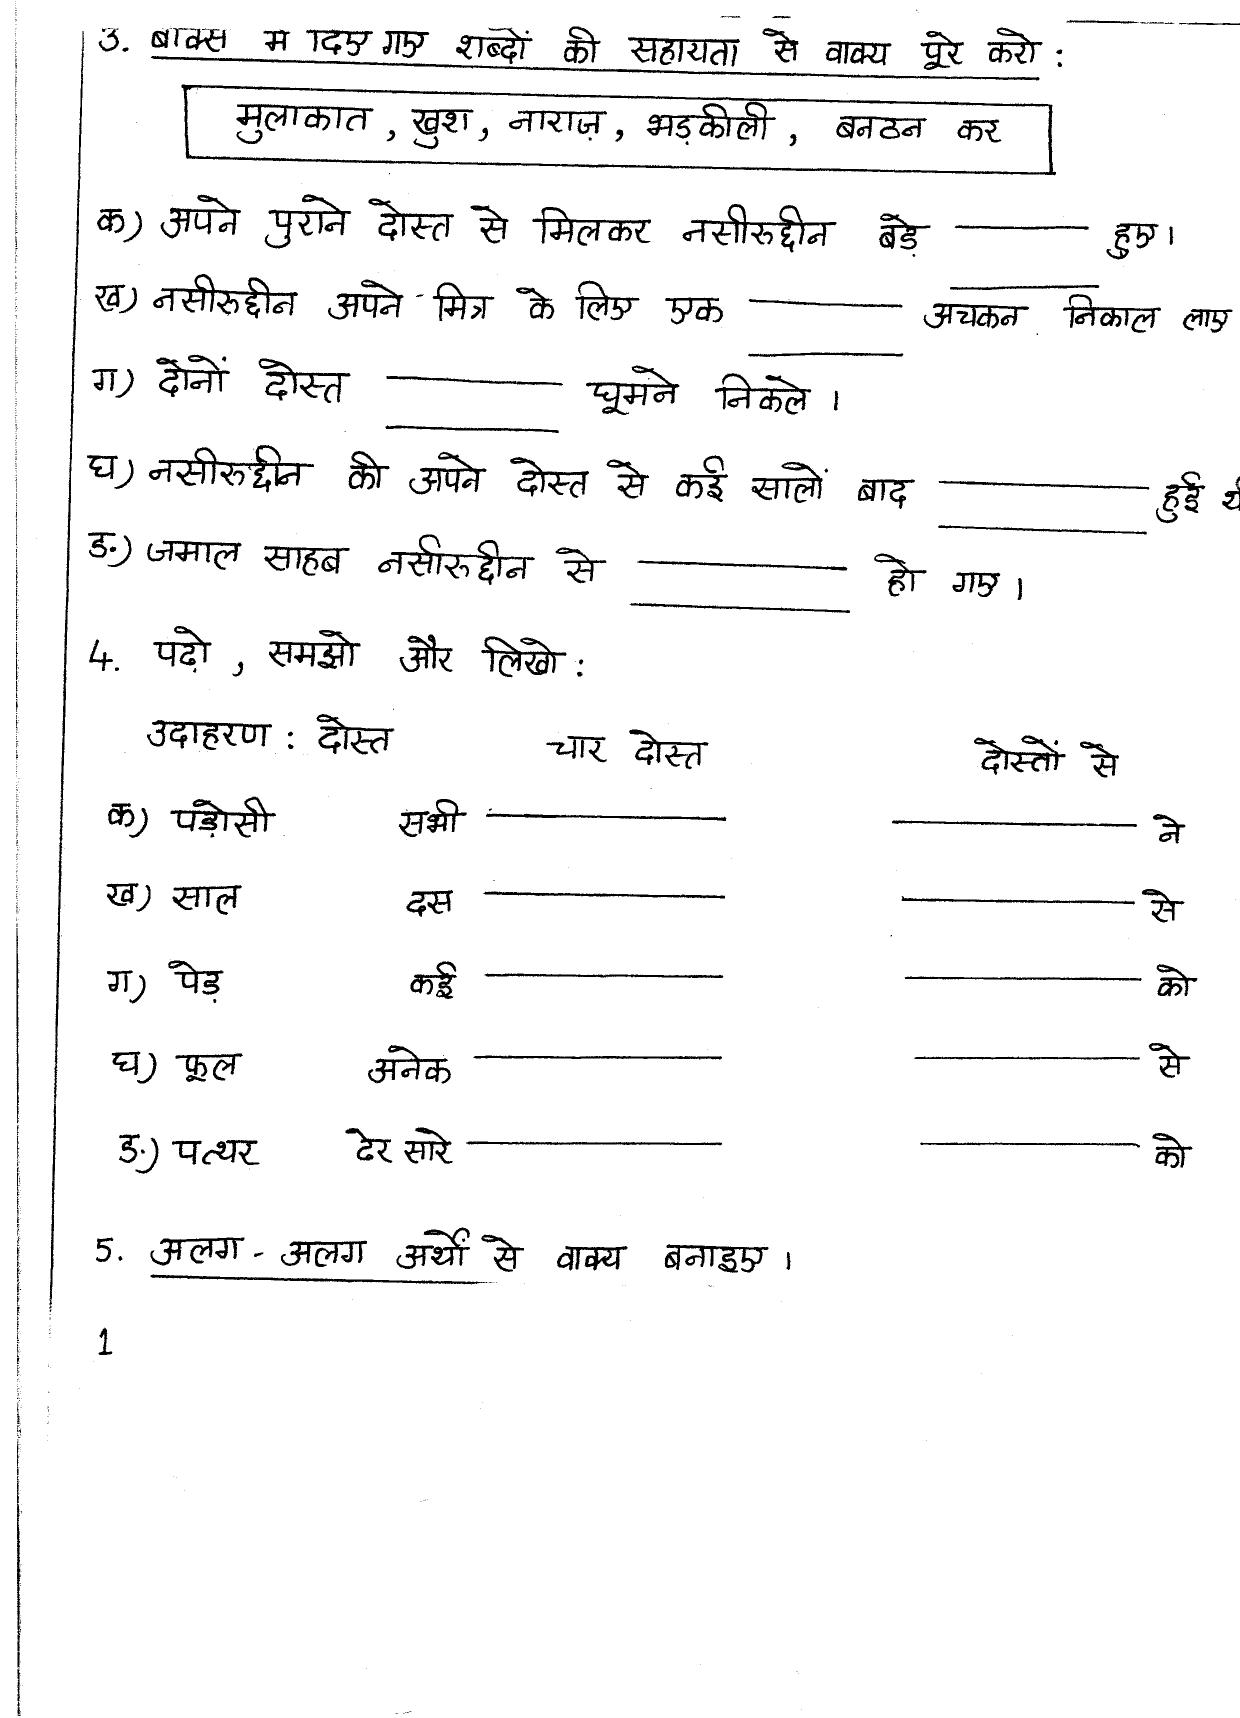 3. बाक्स म दिए गए शब्दों की सहायता से वाक्य पूरे करो :
मुलाकात , खुश , नाराज़ , भड़कीली , बनठन कर
क) अपने पुराने दोस्त से मिलकर नसीरुद्दीन बड़े ——— हुए।
ख) नसीरुद्दीन अपने मित्र के लिए एक ——— अचकन निकाल लाए
ग) दोनों दोस्त ——— घूमने निकले ।
घ) नसीरुद्दीन की अपने दोस्त से कई सालों बाद ——— हुई
ङ) जमाल साहब नसीरुद्दीन से ——— हो गए ।
4. पढ़ो , समझो और लिखो :
उदाहरण : दोस्त चार दोस्त दोस्तों से
क) पड़ोसी सभी ——— ——— ने
ख) साल दस ——— ——— से
ग) पेड़ कई ——— ——— को
घ) फूल अनेक ——— ——— से
ङ) पत्थर ढेर सारे ——— ——— को
5. अलग - अलग अर्थों से वाक्य बनाइए ।
1